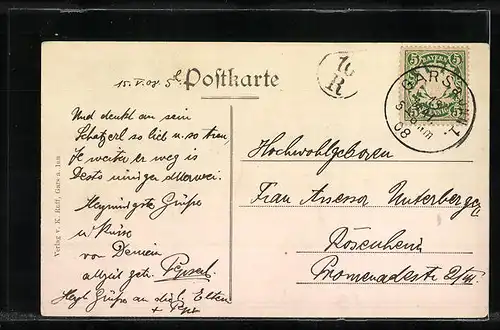 15. V. 08
Postkarte
10
R
BAYERN
5 5
GARS
5
08
Und denkt an sein
Schatzerl so lieb u. so treu,
Je weiter er weg is
Desto inniger allerwei.
Grüße
u. Küsse
von Deinem
allzeit getr.
Grüße an dich, Eltern
+
Verlag v. K. Raff, Gars a. Inn
Hochwohlgeboren
Frau Assessor Unterberger
Rosenheim
Promenadestr.